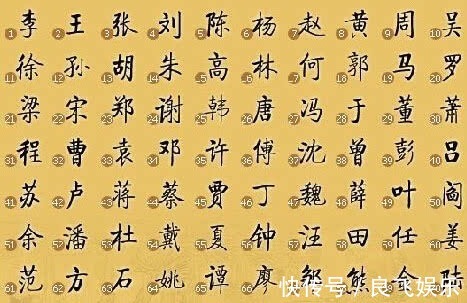 1李 2王 3张 4刘 5陈 6杨 7赵 8黄 9周 10吴
11徐 12孙 13胡 14朱 15高 16林 17何 18郭 19马 20罗
21梁 22宋 23郑 24谢 25韩 26唐 27冯 28于 29董 30萧
31程 32曹 33袁 34邓 35许 36傅 37沈 38曾 39彭 40吕
41苏 42卢 43蒋 44蔡 45贾 46丁 47魏 48薛 49叶 50阎
51余 52潘 53杜 54戴 55夏 56钟 57汪 58田 59任 60姜
61范 62方 63石 64姚 65谭 66廖 邹 熊 金 陆
快传号/良飞娱乐